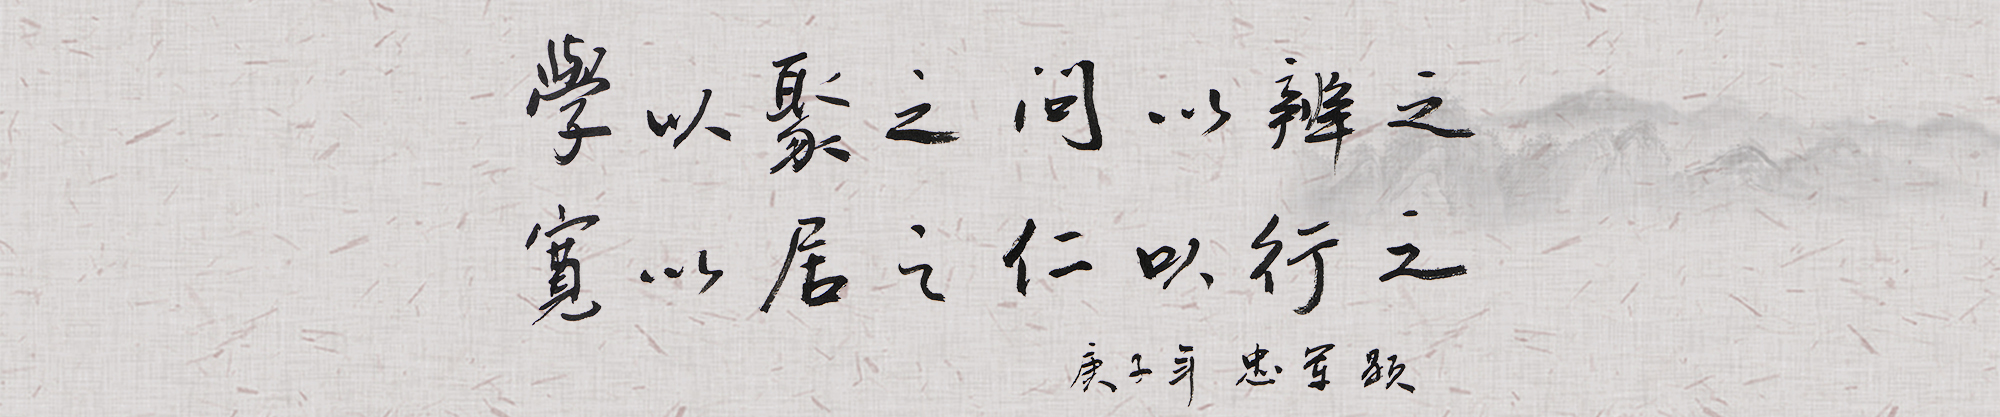 學以聚之问以辨之
寬以居之仁以行之
庚子年 忠军题